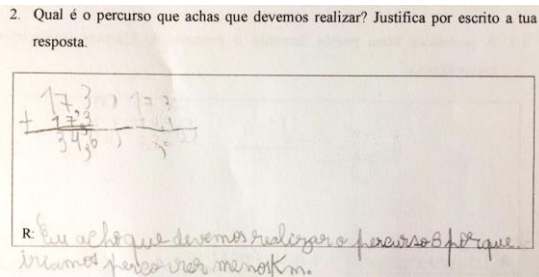 2. Qual é o percurso que achas que devemos realizar? Justifica por escrito a tua
resposta.
17,3
+ 17,3
34,6
R: Eu acho que devemos realizar o percurso B porque
iriamos percorrer menos Km.